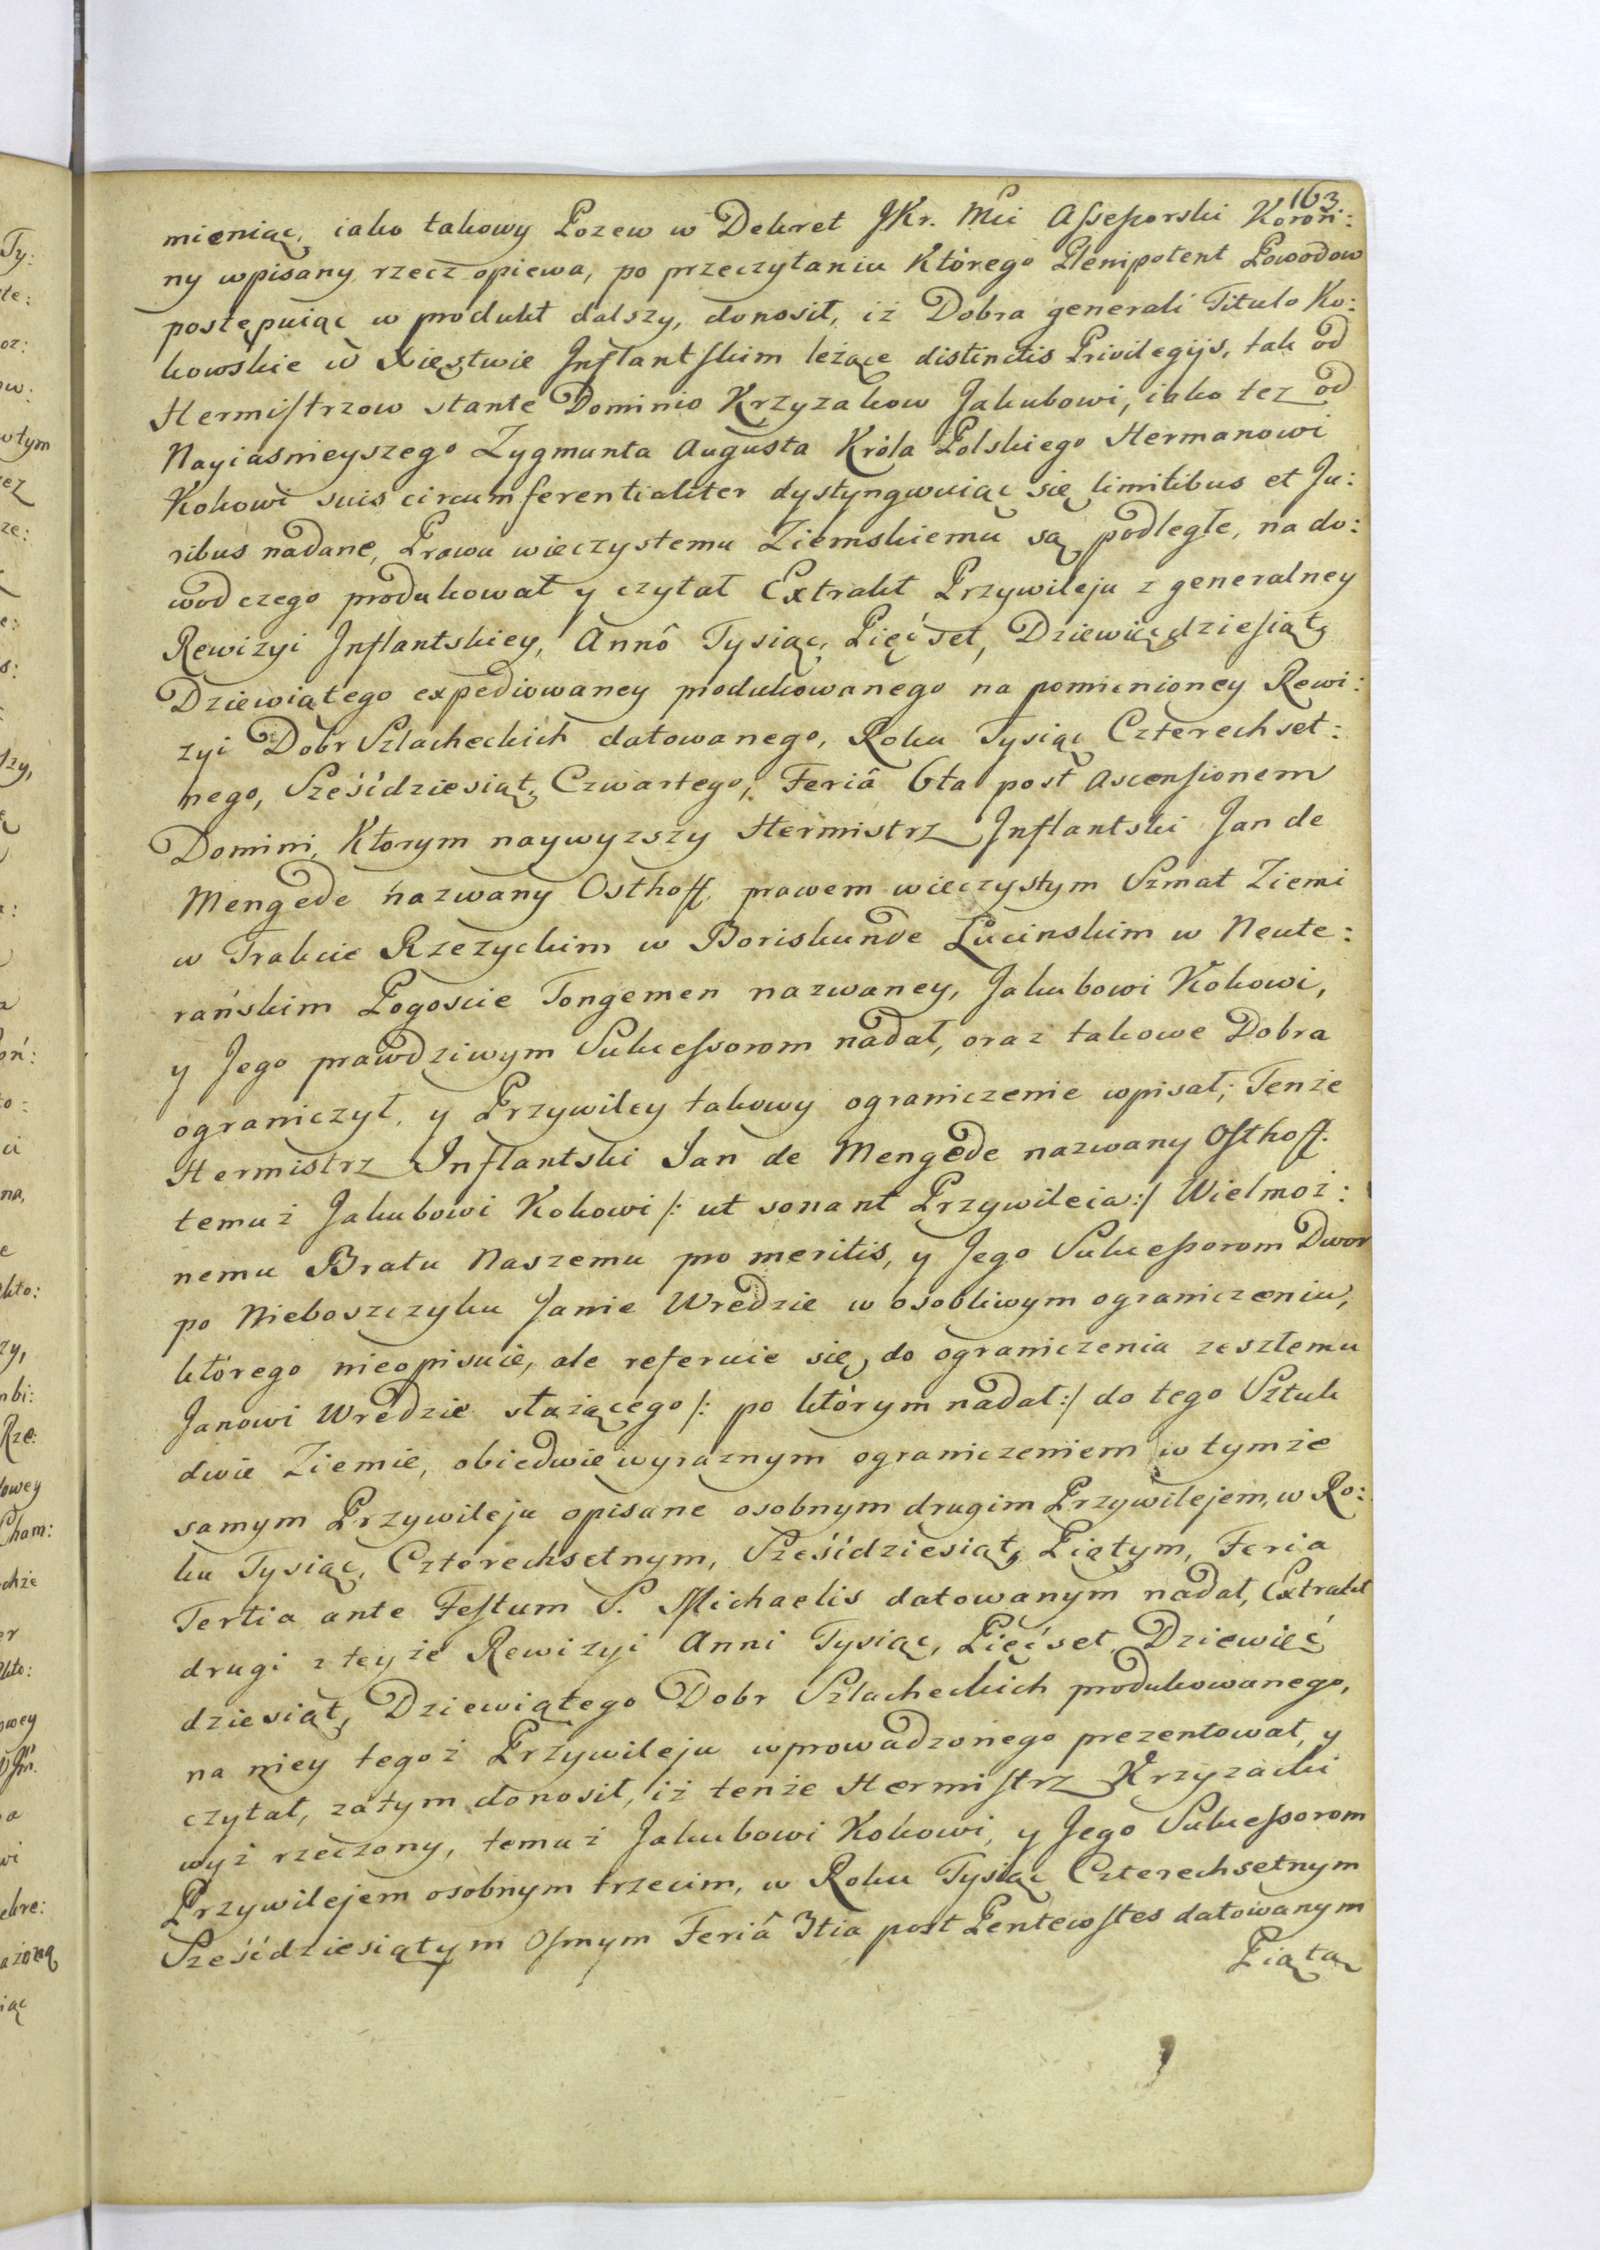 163
mieniąc, iako takowy Pozew w Dekret JKr. Mci Assessorski Koroń:
ny wpisany rzecz opiewa, po przeczytaniu Którego Plenipotent Powodow
postępuiąc w produkt dalszy, donosił, iż Dobra generali Titulo Ko:
kowskie w Xięstwie Inflantskim leżące distinctis Privilegijs, tak od
Hermistrzow stante Dominio Krzyzakow Jakubowi, iako tez od
Nayiasnieyszego Zygmunta Augusta Króla Polskiego Hermanowi
Kokowi suis circumferentialiter dystyngwuiąc się limitibus et Ju:
ribus nadane, Prawu wieczystemu Ziemskiemu są podległe, na do:
wod czego produkował y czytał Extrakt Przywileju z generalney
Rewizyi Inflantskiey, Annô Tysiąc, Pięćset, Dziewięcdziesiąt,
Dziewiątego expediowaney produkowanego na pomienioney Rewi:
zyi Dobr Szlacheckich datowanego, Roku Tysiąc Czterechset:
nego, Sześćdziesiąt, Czwartego, Feriâ 6ta post Ascensionem
Domini, Ktorym naywyzszy Hermistrz Inflantski Jan de
Mengede nazwany Osthoff prawem wieczystym Szmat Ziemi
w Trakcie Rzezyckim w Boriskunde Lucinskim w Neute:
rańskim Pogoscie Tongemen nazwaney, Jakubowi Kokowi,
y Jego prawdziwym Sukcessorom nadał, oraz takowe Dobra
ograniczył, y Przywiley takowy ograniczenie wpisał; Tenże
Hermistrz Inflantski Jan de Mengede nazwany Osthoff
temuż Jakubowi Kokowi /: ut sonant Przywileia :/ Wielmoż:
nemu Bratu Naszemu pro meritis, y Jego Sukcessorom Dwor
po Nieboszczyku Janie Wredzie w osobliwym ograniczeniu,
którego nieopisuie, ale referuie się do ograniczenia zeszłemu
Janowi Wredzie służącego /: po którym nadał :/ do tego Sztuk
dwie Ziemie, obiedwie wyraznym ograniczeniem w tymże
samym Przywileju opisane osobnym drugim Przywilejem, w Ro:
ku Tysiąc, Czterechsetnym, Sześćdziesiąt, Piątym, Feria
Tertia ante Festum S. Michaelis datowanym nadał, Extrakt
drugi z teyże Rewizyi Anni Tysiąc, Pięćset Dziewięć
dziesiąt, Dziewiątego Dobr Szlacheckich produkowanego,
na niey tegoż Przywileju wprowadzonego prezentował, y
czytał, zatym donosił, iż tenże Hermistrz Krzyzacki
wyż rzeczony, temuż Jakubowi Kokowi, y Jego Sukcessorom
Przywilejem osobnym trzecim, w Roku Tysiąc Czterechsetnym
Sześćdziesiątym Osmym Feriâ 3tia post Pentewstes datowanym
Piątą